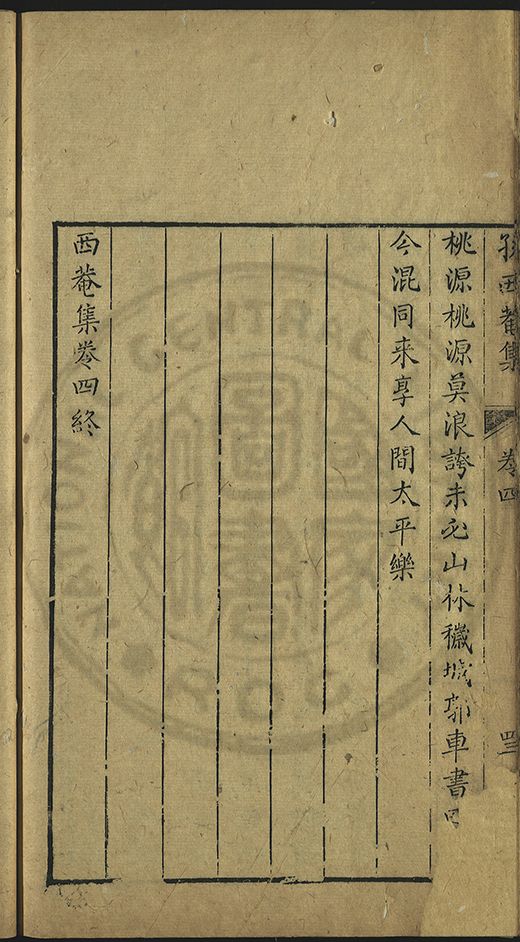 孫西菴集 卷四 四三
桃源桃源莫浪誇未必山林穢城郭車書
今混同来享人間太平樂
西菴集卷四終